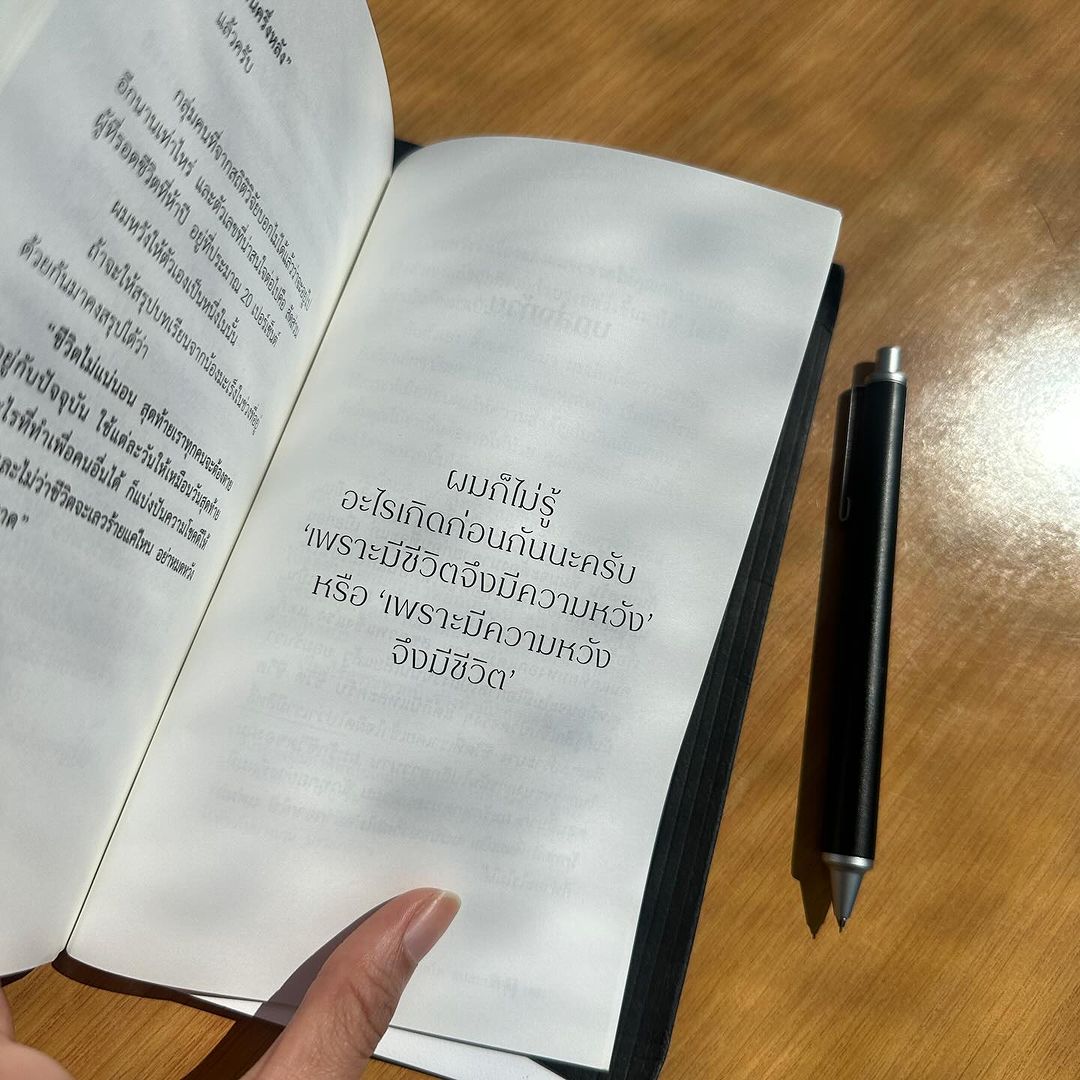 นครึ่งหลัง”
แล้วครับ
กลุ่มคนที่จากสถิติวิจัยบอกไม่ได้แล้วว่าจะอยู่ไป
อีกนานเท่าไหร่ และตัวเลขที่น่าสนใจต่อไปคือ สัดส่วน
ผู้ที่รอดชีวิตที่ห้าปี อยู่ที่ประมาณ 20 เปอร์เซ็นต์
ผมหวังให้ตัวเองเป็นหนึ่งในนั้น
ถ้าจะให้สรุปบทเรียนจากน้องมะเร็งในช่วงที่อยู่
ด้วยกันมาคงสรุปได้ว่า
“ชีวิตไม่แน่นอน สุดท้ายเราทุกคนจะต้องตาย
อยู่กับปัจจุบัน ใช้แต่ละวันให้เหมือนวันสุดท้าย
อะไรที่ทำเพื่อคนอื่นได้ ก็แบ่งปันความโชคดีให้
และไม่ว่าชีวิตจะเลวร้ายแค่ไหน อย่าหมดหวัง
ผมก็ไม่รู้
อะไรเกิดก่อนกันนะครับ
‘เพราะมีชีวิตจึงมีความหวัง’
หรือ ‘เพราะมีความหวัง
จึงมีชีวิต’